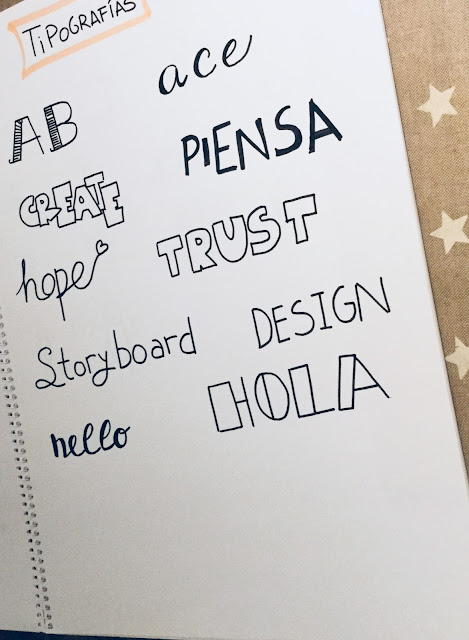 TiPOGRAFÍAS
ace
AB
PIENSA
CREATE
TRUST
hope
DESIGN
Storyboard
HOLA
hello